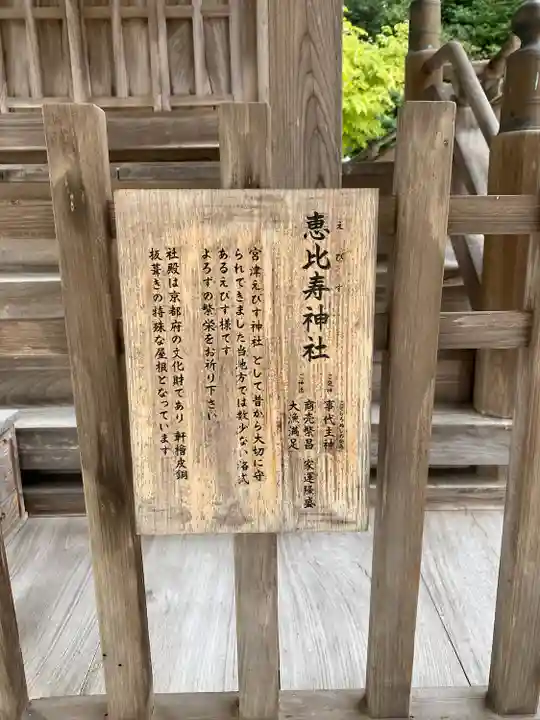 えびす
恵比寿神社
ことしろぬしのかみ
ご祭神 事代主神
ご神徳 商売繁昌 家運隆盛
大漁満足
宮津えびす神社 として昔から大切に守
られてきました当地方では数少ない
あるえびす様です
よろずの繁栄をお祈り下さい
社殿は京都府の文化財であり 軒檜皮銅
板葺きの特殊な屋根となっています